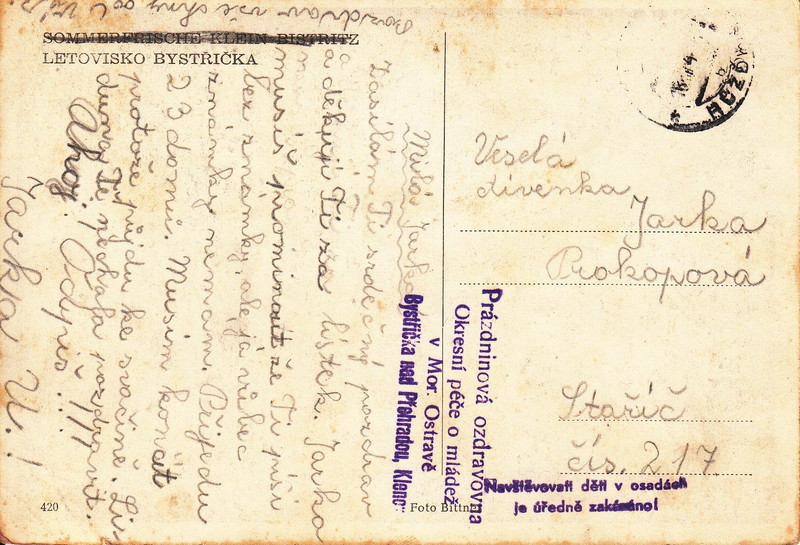 SOMMERFRISCHE KLEIN BISTRITZ
LETOVISKO BYSTŘIČKA
Milá Jarko!
Zasílám Ti srdečný pozdrav
a děkuji Ti za lístek. Jarko
musíš prominout že Ti píši
bez známky, ale já vůbec
známky nemám. Přijedu
23 domů. Musím končit
protože půjdu ke svačině.
Ti nechala pozdravit.
Ahoj!
Odpiš!!!
Jarka U.!
Pozdrav všechny
Veselá
dívenka
Jarka
Prokopová
Staříč
čís. 217.
Prázdninová ozdravovna
Okresní péče o mládež
v Mor. Ostravě
Bystřička nad Přehradou, Klenov
Navštěvovati děti v osadách
je úředně zakázáno!
420
Foto Bittner